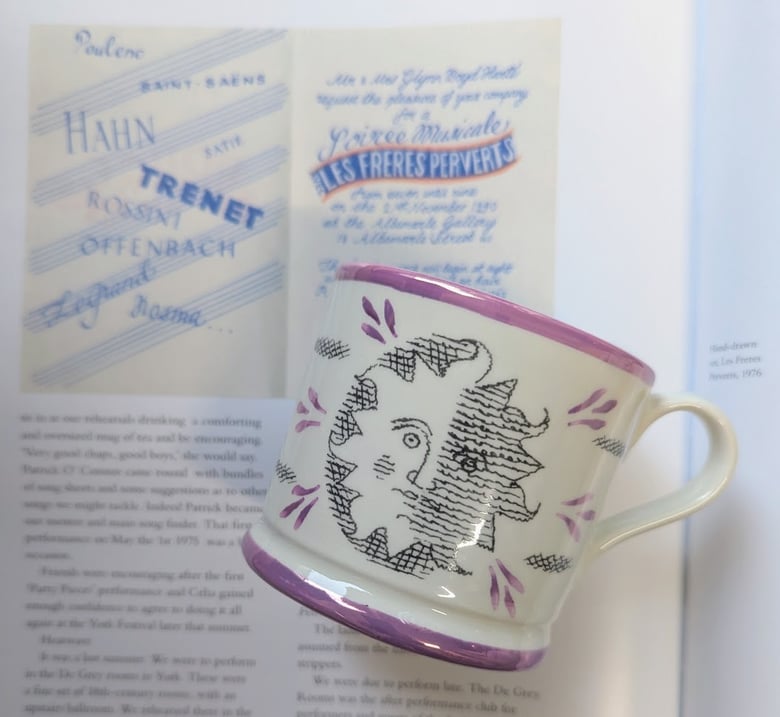 Poulenc
SAINT-SAËNS
HAHN
SATIE
TRENET
ROSSINI
OFFENBACH
Legrand
Kosma...
Mr & Mrs Glynn Boyd Harte
request the pleasure of your company
for a
Soirée Musicale
LES FRERES PERVERTS
from seven until nine
on the November
at the Albemarle Gallery
Albemarle Street
will begin at eight
Hand-drawn
Les Freres
Perverts, 1976
us in at our rehearsals drinking a comforting
and oversized mug of tea and be encouraging.
'Very good chaps, good boys,' she would say.
Patrick O' Connor came round with bundles
of song sheets and some suggestions as to other
songs we might tackle. Indeed Patrick became
our mentor and main song finder. That first
performance on May the 1st 1975 was a
success.
Friends were encouraging after the first
'Party Pieces' performance and Celia gained
enough confidence to agree to doing it all
again at the York Festival later that summer.
It was a hot summer. We were to perform
in the De Grey rooms in York. These were
a fine set of 18th-century rooms, with an
upstairs ballroom. We rehearsed there in the
The
assumed from the
strippers.
We were due to perform late. The De Grey
Rooms was the after performance club for
performers and